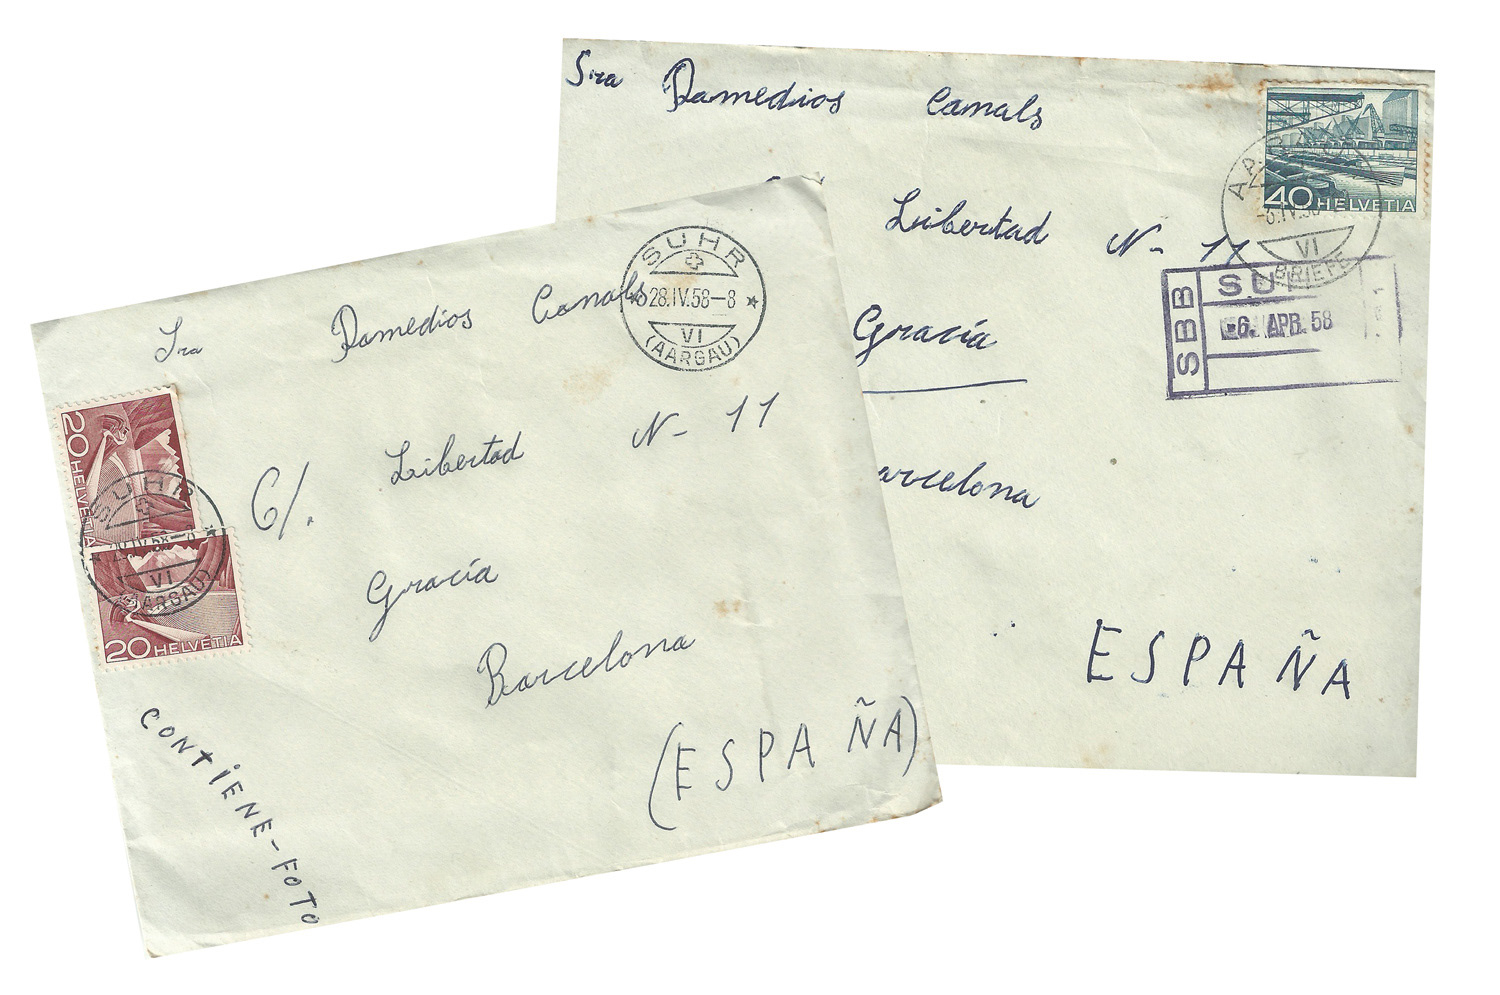 Sra Damedios Canals
Libertad N- 11
Gracía
arcelona
ESPAÑA
40 HELVETIA
-6.IV.58
VI
BRIEFE
SBB
SU
-6. APR. 58
Sra Damedios Canals
C/. Libertad N- 11
Gracía
Barcelona
(ESPAÑA)
CONTIENE-FOTO
SUHR
28.IV.58-8
VI
(AARGAU)
20 HELVETIA
SUHR
28.IV.58-8
VI
(AARGAU)
20 HELVETIA